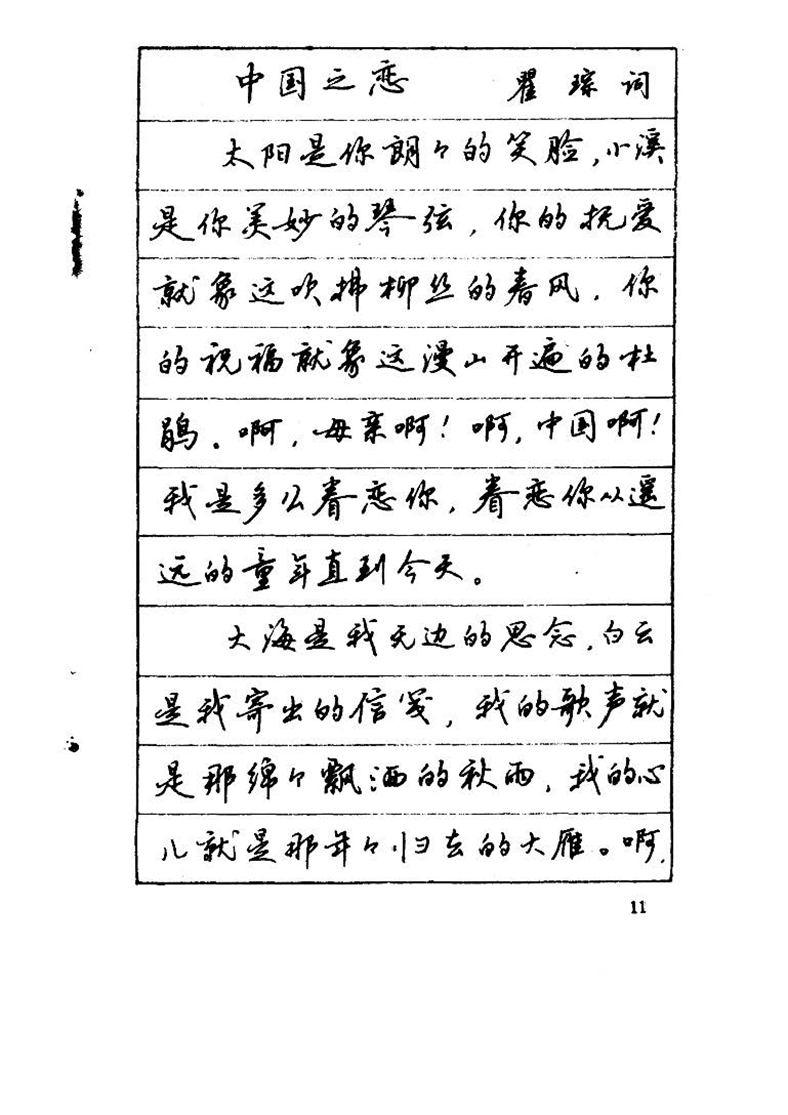 中国之恋 瞿琮词
太阳是你朗々的笑脸，小溪
是你美妙的琴弦，你的抚爱
就象这吹拂柳丝的春风．你
的祝福就象这漫山开遍的杜
鹃。啊，母亲啊！啊，中国啊！
我是多么眷恋你，眷恋你从遥
远的童年直到今天。
大海是我无边的思念，白云
是我寄出的信笺，我的歌声就
是那绵々飘洒的秋雨，我的心
儿就是那年々归去的大雁。啊，
11